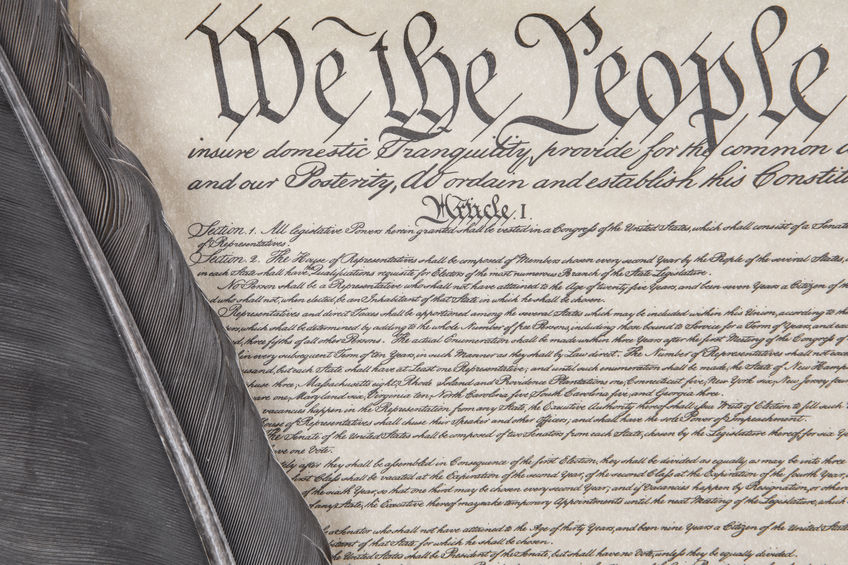 We the People
insure domestic Tranquility, provide for the common
and our Posterity, do ordain and establish this Constit
Article. I.
Section. 1. All legislative Powers herein granted shall be vested in a Congress of the United States, which shall consist of a Senate
of Representatives.
Section. 2. The House of Representatives shall be composed of Members chosen every second Year by the People of the several States,
in each State shall have the Qualifications requisite for Electors of the most numerous Branch of the State Legislature.
No Person shall be a Representative who shall not have attained to the Age of twenty five Years, and been seven Years a Citizen of the
who shall not, when elected, be an Inhabitant of that State in which he shall be chosen.
Representatives and direct Taxes shall be apportioned among the several States which may be included within this Union, according to the
which shall be determined by adding to the whole Number of free Persons, including those bound to Service for a Term of Years, and
three fifths of all other Persons. The actual Enumeration shall be made within three Years after the first Meeting of the Congress of
in every subsequent Term of ten Years, in such Manner as they shall by Law direct. The Number of Representatives shall not
but each State shall have at Least one Representative; and until such enumeration shall be made, the State of New Hamp
three, Massachusetts eight, Rhode Island and Providence Plantations one, Connecticut five, New York six, New Jersey four
one, Maryland six, Virginia ten, North Carolina five, South Carolina five, and Georgia three.
vacancies happen in the Representation from any State, the Executive Authority thereof shall issue Writs of Election to fill such
of Representatives shall chuse their Speaker and other Officers; and shall have the sole Power of Impeachment.
The Senate of the United States shall be composed of two Senators from each State, chosen by the Legislature thereof, for six
have one Vote.
after they shall be assembled in Consequence of the first Election, they shall be divided as equally as may be into three
shall be vacated at the Expiration of the second Year, of the second Class at the Expiration of the fourth Year,
of the sixth Year, so that one third may be chosen every second Year; and if Vacancies happen by Resignation, or other
of any State, the Executive thereof may make temporary Appointments until the next Meeting of the Legislature, which
a Senator who shall not have attained to the Age of thirty Years, and been nine Years a Citizen of the United States
of that State for which he shall be chosen.
the United States shall be President of the Senate, but shall have no Vote, unless they be equally divided.